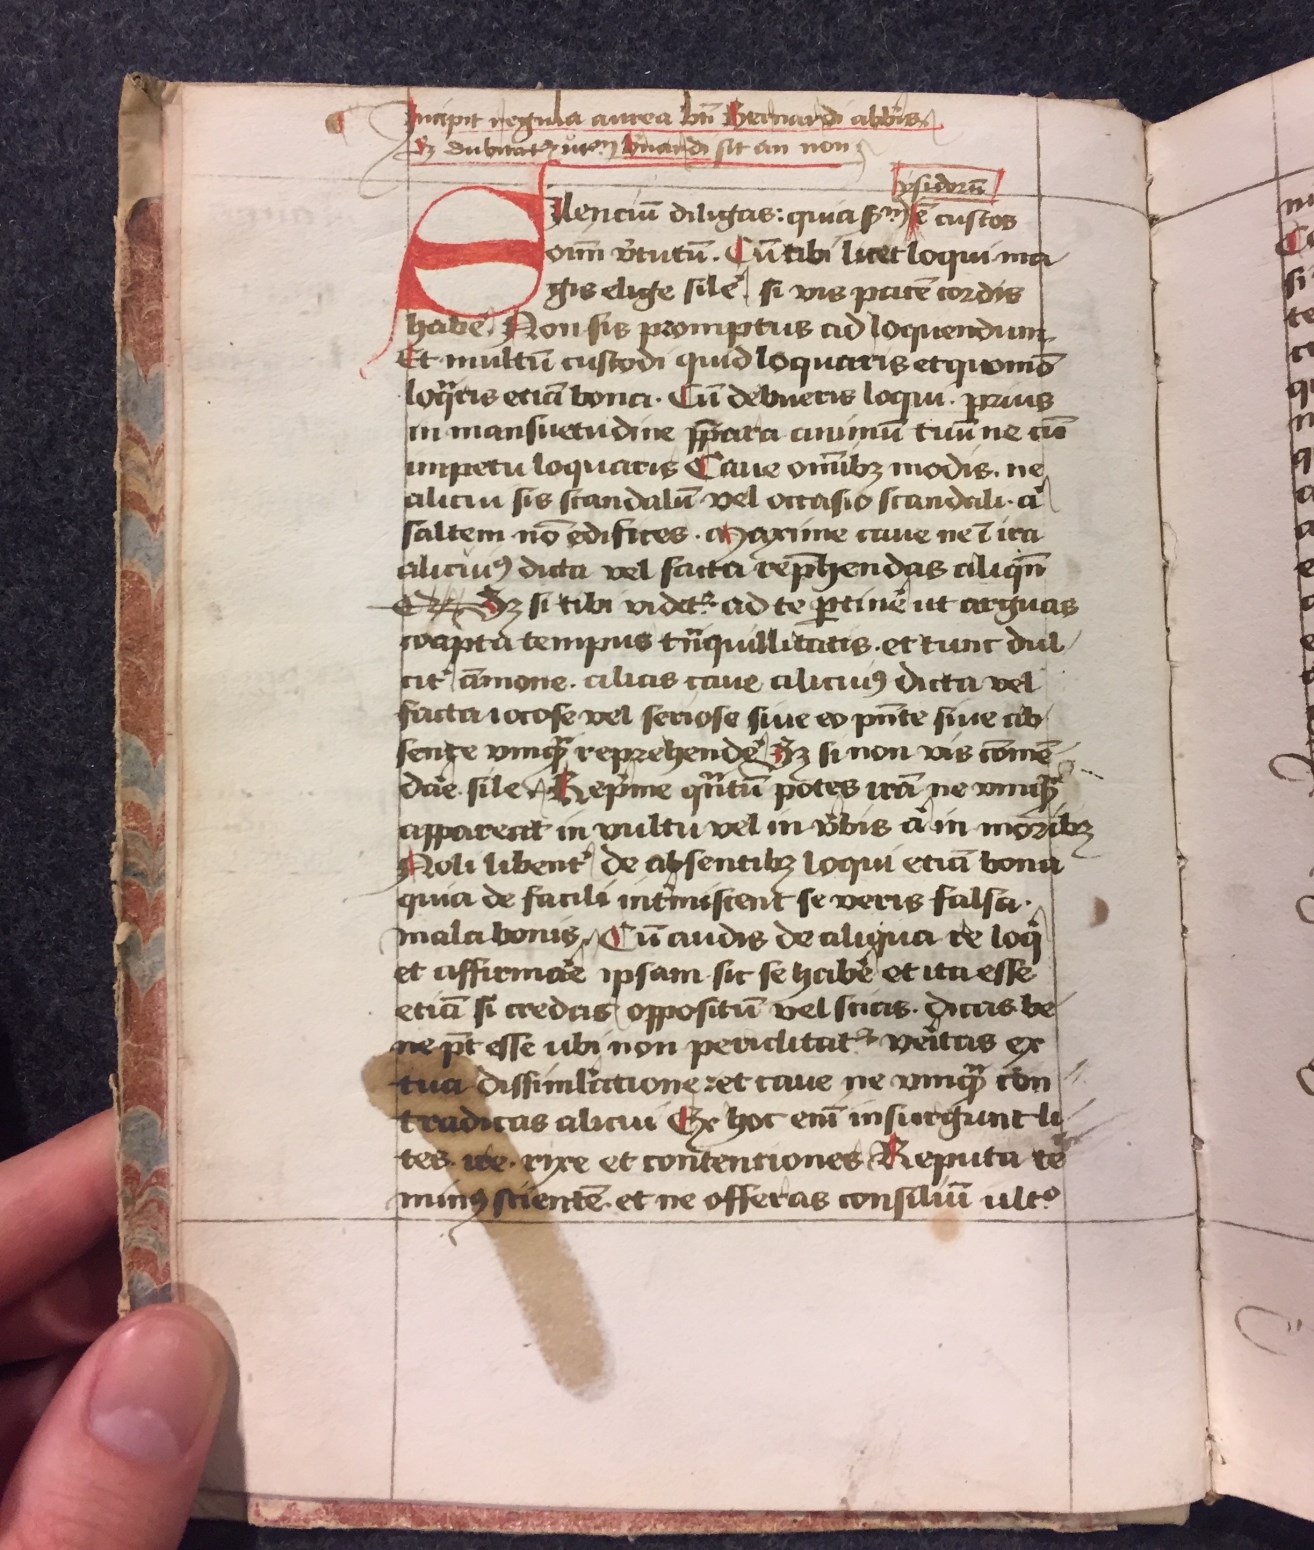 Incipit regula aurea bti Bernardi abbis
Sz dubitatr utrum bernardi sit an non
ysidorū
Silenciū diligas: quia ē custos
oīm v̄tutū. Cū tibi licet loqui ma
gis elige silē. si vis pacē cordis
habē. Non sis promptus ad loquendum
Et multū custodi quid loquaris et quomō
loqr̄is etiā bona. Cū debueris loqui. prius
in mansuetudine p̄para animū tuū ne cū
impetu loquaris Caue om̄ibz modis. ne
alicui sis scandalū vel occasio scandali. a
saltem nō edifices. Maxime caue ne ī ira
alicuiꝯ dicta vel facta rep̄hendas aliqn̄
Sz si tibi videtr ad te ꝑtinē ut arguas
capta tempus tn̄quillitatis. et tunc dul
cit amone. alias caue alicuiꝯ dicta vel
facta iocose vel seriose siue eo pn̄te siue ab
sente vnqꝫ reprehendē Sz si non vis cōmē
dāe. sile. Rep̄me qn̄tū potes irā ne vnqꝫ
appareat in vultu vel in v̄bis a in moribz
Noli libent de absentibz loqui etiā bona
quia de facili int̄miscent se veris falsa.
mala bonis. Cū audis de aliqua re loq
et affirmāe ipsam sic se habē et ita esse
etiā si credas oppositū vel scias. dicas be
ne pt̄ esse ubi non periclitatr vēitas ex
tua dissiml̄atione: et caue ne vnqꝫ con
tradicas alicui Ex hoc enī insurgunt li
tes. ire. rixe et contenciones Reputa te
minꝯ scientē. et ne offeras consiliū ultº